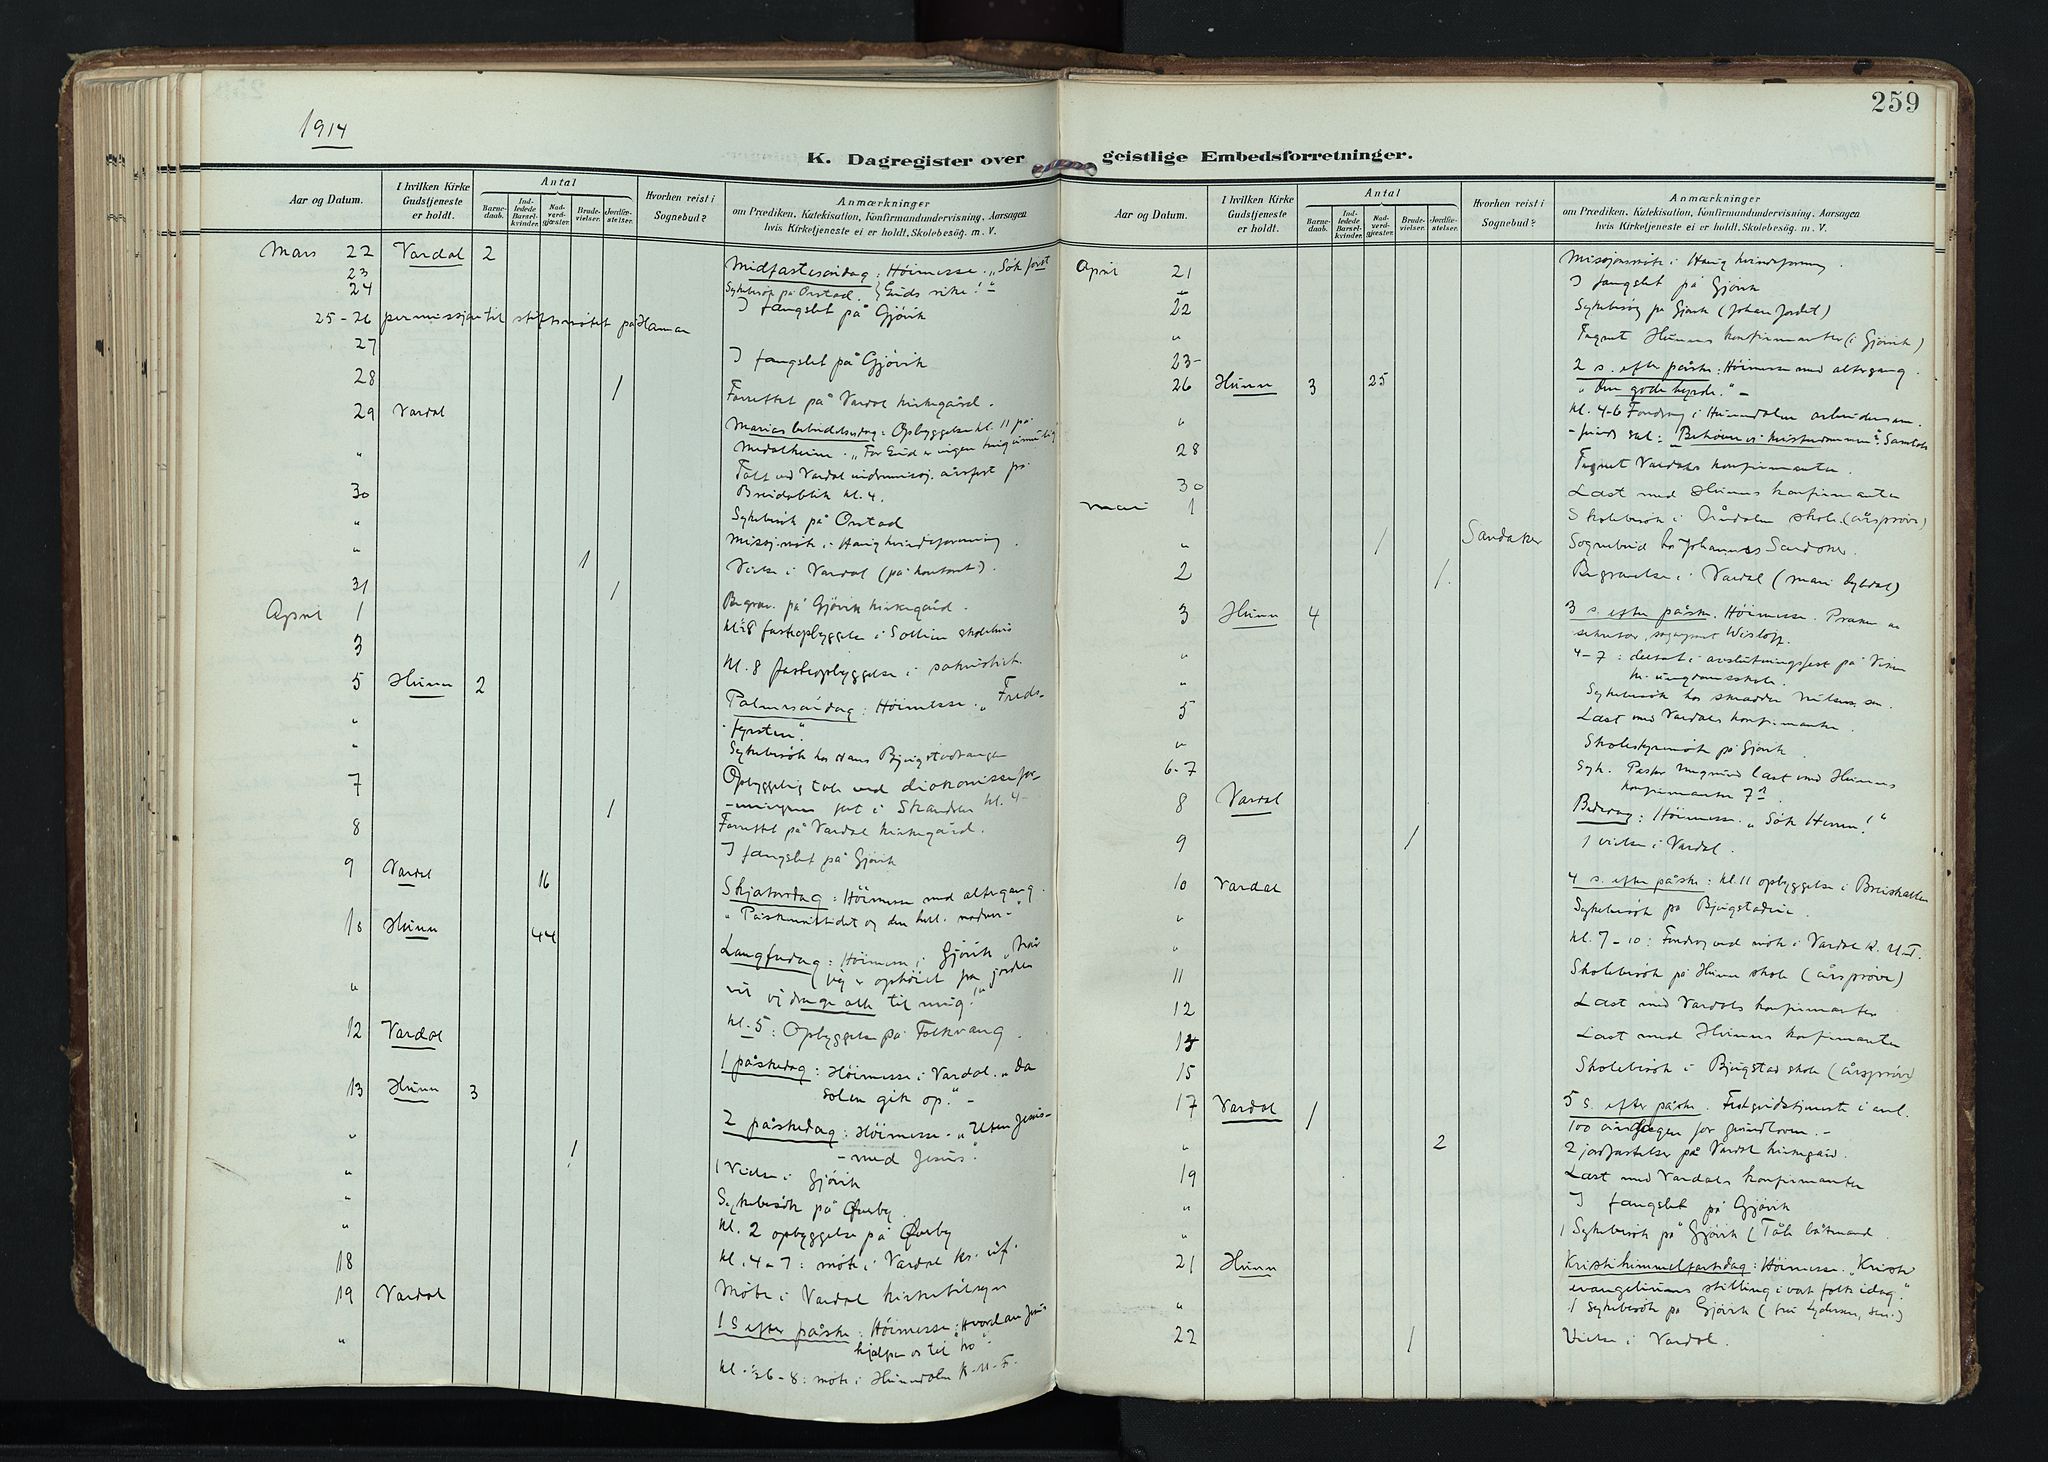 259
1914
K. Dagregister over geistlige Embedsforretninger.
Aar og Datum.
I hvilken Kirke Gudstjeneste er holdt.
Antal
Barnedaab.
Indledede Barselkvinder.
Nadverdgjæster.
Brudevielser.
Jordfæstelser.
Hvorhen reist i Sognebud?
Anmærkninger
om Prædiken, Katekisation, Konfirmandundervisning, Aarsagen
hvis Kirketjeneste ei er holdt, Skolebesøg. m. V.
Mars 22 Vardal 2 Midfastesöndag: Höimesse. "Søk först
Guds rike!"
23 Sykebesök på Orstad.
24 I fængslet på Gjövik
25-26 permissjon til stiftsmötet på Hamar
27 I fængslet på Gjövik
28 1 Forrettet på Vardal kirkegård.
29 Vardal Marias budskapsdag: Opbyggelse kl. 11 på
" For Gud er ingen ting umulig
" Talt ved Vardal indremisj. årsfest på
Breidablik kl. 4.
30 Sykebesök på Orstad
" Missj.möte i Hunig kvindeforening.
" 1 Vielse i Vardal (på kontoret).
31 1 Begrav. på Gjövik kirkegård.
April 1 fasteopbyggelse i Sollien skolehus
3 kl. 8 fasteopbyggelse i sakristiet.
5 Hunn 2 Palmesöndag: Höimesse. "Freds-
fyrsten".
" Sykebesök hos
7 Opbyggelig tale ved diakonissefor-
eningens fest i Stranden kl. 4-
8 1 Forrettet på Vardal kirkegård.
I fængslet på Gjövik
9 Vardal 16 Skjærtorsdag: Höimesse med altergang.
"Påskemåltidet og den hell. nadver-"
10 Hunn 44 Langfredag: Höimesse i Gjövik "Når
jeg er ophöiet fra jorden
vil jeg drage alle til mig!"
" kl. 5: Opbyggelse på Folkvang.
12 Vardal 1 påskedag: Höimesse i Vardal. "Da
solen gik op." -
13 Hunn 3 2 påskedag: Höimesse. "Uten Jesus -
- med Jesus".
" 1 1 Vielse i Gjövik
" Sykebesök på Överby.
" kl. 2 opbyggelse på Överby
" kl. 4-7: möte i Vardal kr. uf.
18 Möte i Vardal kirketilsyn
19 Vardal 1 S efter påske: Höimesse: "Hvordan Jesus
hjælper os til tro"
" 6-8: möte i Hunndalen K.U.F.
Aar og Datum.
I hvilken Kirke Gudstjeneste er holdt.
Antal
Barnedaab.
Indledede Barselkvinder.
Nadverdgjæster.
Brudevielser.
Jordfæstelser.
Hvorhen reist i Sognebud?
Anmærkninger
om Prædiken, Katekisation, Konfirmandundervisning, Aarsagen
hvis Kirketjeneste ei er holdt, Skolebesøg. m. V.
Missjonsmöte i Hunig kvindeforening.
April 21 I fængslet på Gjövik
22 på Gjövik (Johan Jordet)
" Tegnet Hunns konfirmanter (i Gjövik)
23-
26 Hunn 3 25 2 s. efter påske: Höimesse med altergang.
"Den gode hyrde." -
" kl. 4-6 Foredrag i Hunndalen arbeidersam-
fund
28 Tegnet Vardals konfirmanter.
30 Læst med Hunns konfirmanter
mai 1 Skolebesök i skole (årspröve)
" 1 Sandaker Sognebud hos Johannes Sandaker.
2 1. Begravelse i Vardal
3 Hunn 4 3 s. efter påske. Höimesse. Præken av
sekretær, sogneprest Wisløff.
" 4-7: deltat i avslutningsfest på Viken
kr. ungdomsskole.
" Sykebesök hos skrædder Nilsen
5 Læst med Vardals konfirmanter
" Skolestyremöte på Gjövik.
6-7 Syk. Pastor læst med Hunns
konfirmanter
8 Vardal Bededag: Höimesse. "Søk Herren!"
9 1 1 vielse i Vardal.
10 Vardal 4 s. efter påske: kl. 11 opbyggelse i Breiskallen
" Sykebesök på Bjugstadeie.
" kl. 7-10: Foredrag ved möte i Vardal K.U.F.
11 Skolebesök på Hunn skole (årspröve)
12 Læst med Vardals konfirmanter
14 Læst med Hunns konfirmanter
15 Skolebesök i Bjugstad skole (årspröve)
17 Vardal 1 5 s. efter påske. Festgudstjeneste i anl.
100 årsdagen for grundloven. -
" 2 2 jordfæstelser på Vardal kirkegård.
19 Læst med Vardals konfirmanter
" I fængslet på Gjövik
" 1 Sykebesök på Gjövik
21 Hunn Kristi himmelfartsdag: Höimesse. "Kristi
evangeliums stilling i vort folk idag."
" 1 Sykebesök på Gjövik
22 1 Vielse i Vardal.